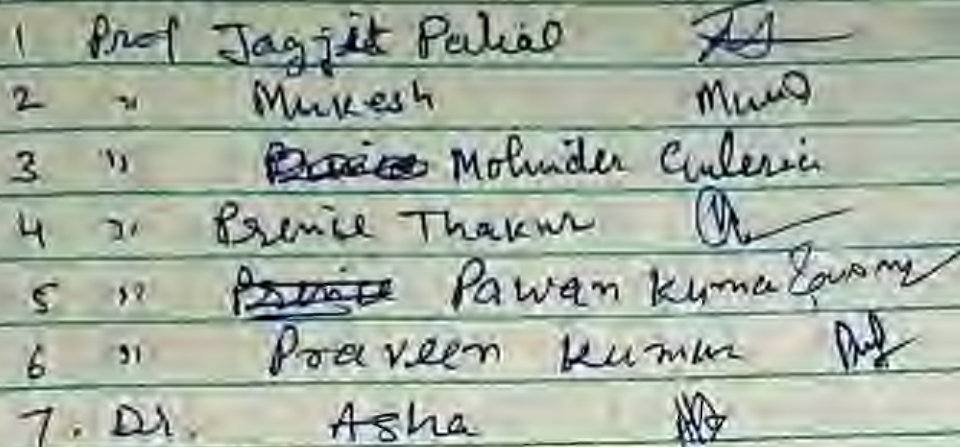 1 Prof Jagjit Palial
2 " Mukesh
3 " Mohinder Guleria
4 " Prenice Thakur
5 " Pawan Kumar
6 " Praveen Kumar
7. Dr. Asha